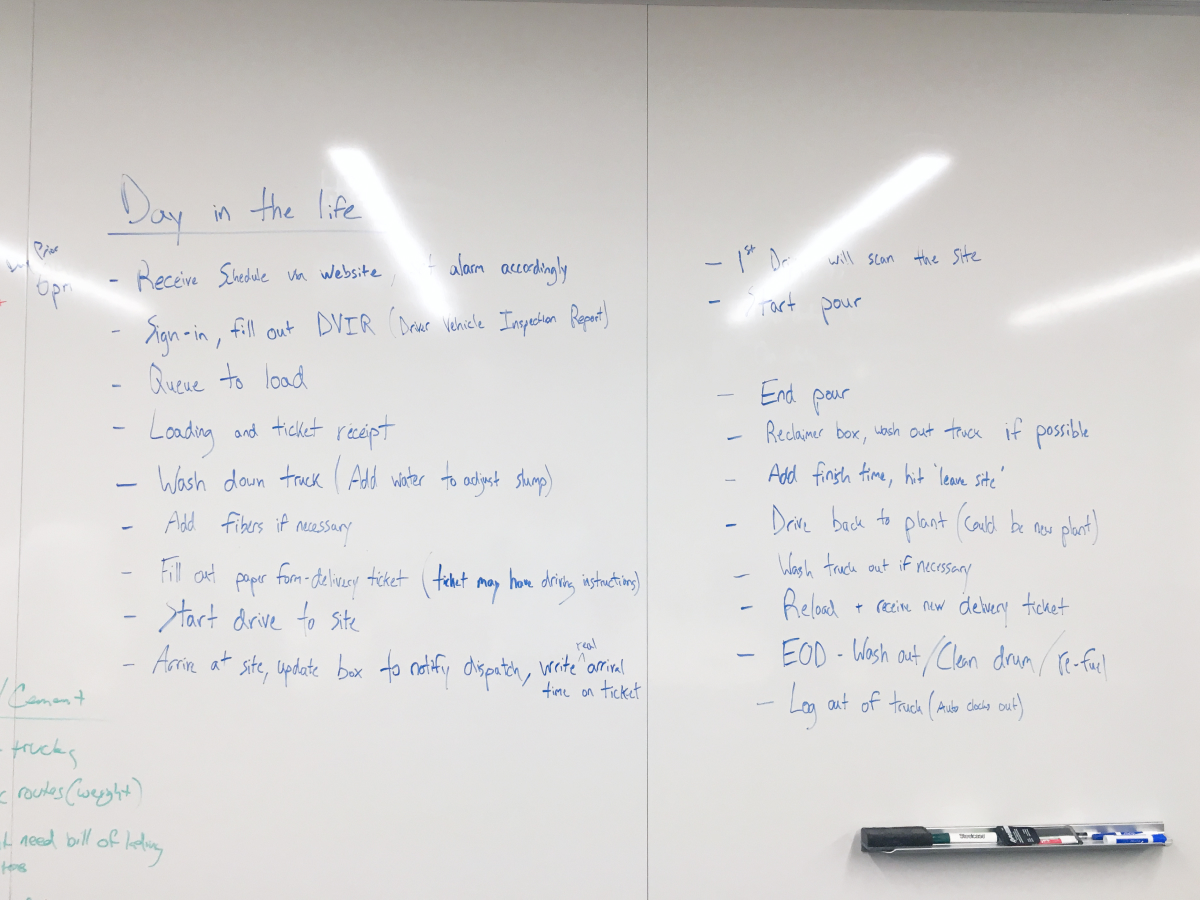 Day in the life
- Receive Schedule via website, alarm accordingly
- Sign-in, fill out DVIR (Driver Vehicle Inspection Report)
- Queue to load
- Loading and ticket receipt
- Wash down truck (Add water to adjust slump)
- Add fibers if necessary
- Fill out paper form-delivery ticket (ticket may have driving instructions)
- Start drive to site
- Arrive at site, update box to notify dispatch, write real arrival
time on ticket
- 1st will scan the site
- Start pour
- End pour
- Reclaimer box, wash out truck if possible
- Add finish time, hit 'leave site'
- Drive back to plant (Could be new plant)
- Wash truck out if necessary
- Reload + receive new delivery ticket
- EOD - Wash out/Clean drum/re-fuel
- Log out of truck (Auto clocks out)
6pm
/Cement
trucks
routes (weight)
need bill of lading